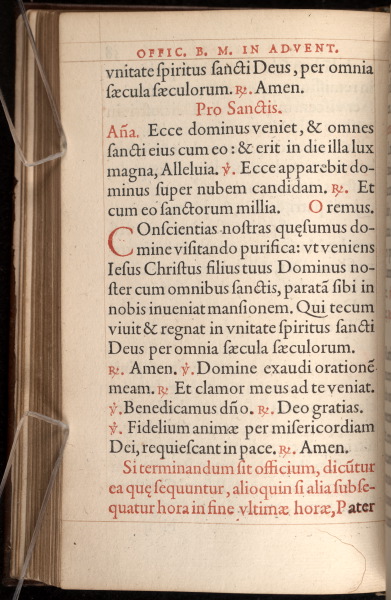 OFFIC. B. M. IN ADVENT.
vnitate ſpiritus ſancti Deus, per omnia
ſæcula ſæculorum. ℞. Amen.
Pro Sanctis.
Aña. Ecce dominus veniet, & omnes
ſancti eius cum eo: & erit in die illa lux
magna, Alleluia. ℣. Ecce apparebit do-
minus ſuper nubem candidam. ℞. Et
cum eo ſanctorum millia. Oremus.
COnſcientias noſtras quęſumus do-
mine viſitando purifica: vt veniens
Ieſus Chriſtus filius tuus Dominus no-
ſter cum omnibus ſanctis, paratã ſibi in
nobis inueniat manſionem. Qui tecum
viuit & regnat in vnitate ſpiritus ſancti
Deus per omnia ſæcula ſæculorum.
℞. Amen. ℣. Domine exaudi orationẽ
meam. ℞. Et clamor meus ad te veniat.
℣. Benedicamus dño. ℞. Deo gratias.
℣. Fidelium animæ per miſericordiam
Dei, requieſcant in pace. ℞. Amen.
Si terminandum ſit officium, dicũtur
ea quę ſequuntur, alioquin ſi alia ſubſe-
quatur hora in fine vltimæ horæ, Pater